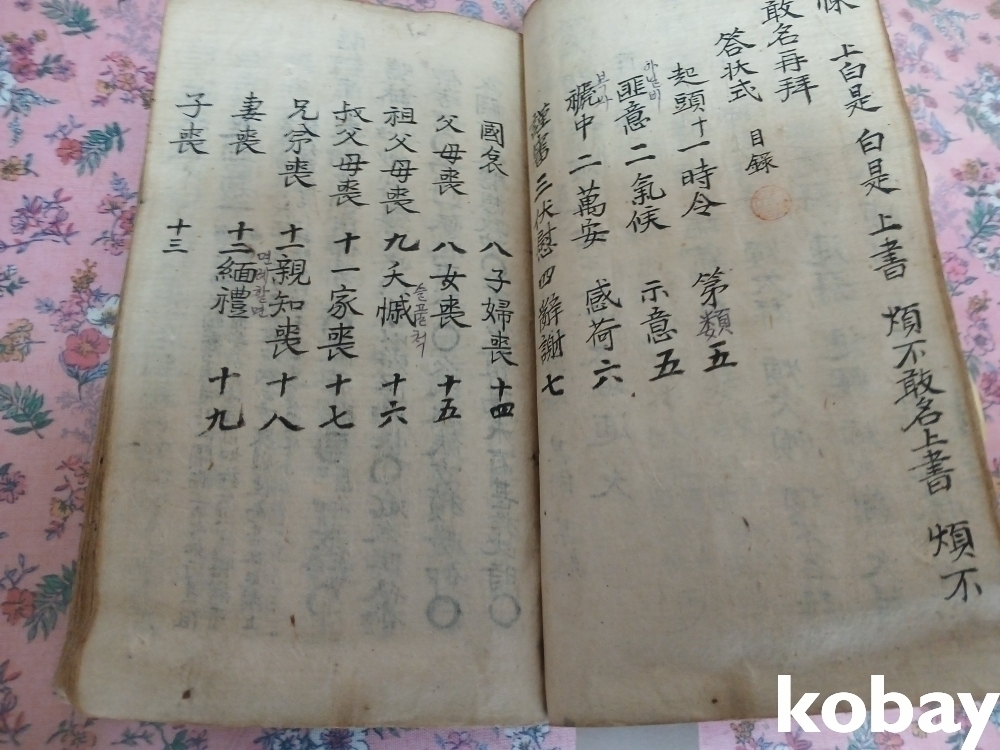 上白是 白是 上書 煩不敢名上書 煩不
敢名再拜
答狀式 目錄
起頭 十一時令 第類五
아닐비
匪意 二 氣候 示意 五
中 二 萬安 感荷 六
謹審 三 伏慰 四 辭謝 七
國哀 八 子婦喪 十四
父母喪 八 女喪 十五
슬플척
祖父母喪 九 夭慽 十六
叔父母喪 十 一家喪 十七
兄弟喪 十一 親知喪 十八
면례할면
妻喪 十二 緬禮 十九
子喪 十三
kobay